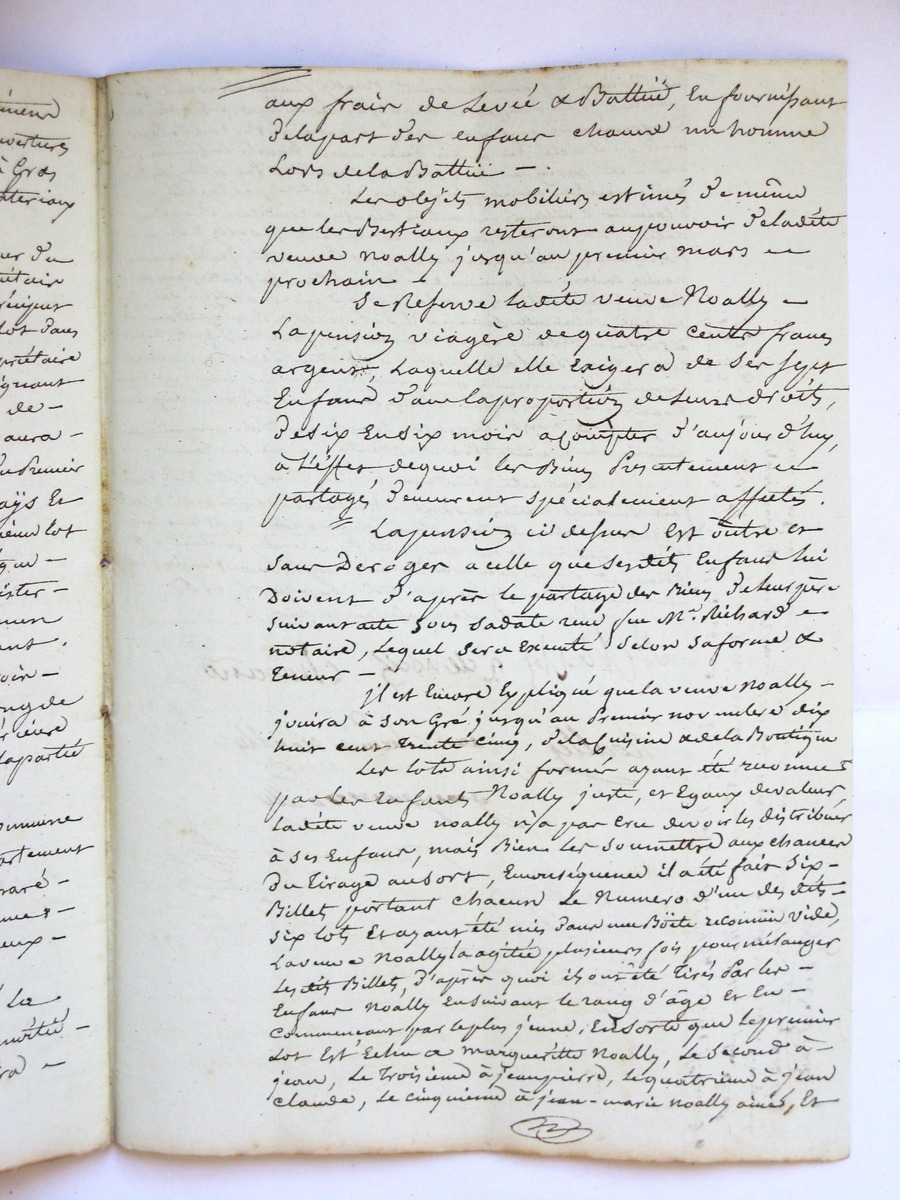 ément
uvertures
à Gros
atériaux
ur du
étaire
récipent
lot dans
opriétaire
ignant
de -
aura -
Premier
ays Et
ième lot
ister -
ent.
oir -
ong de
rière
laparti
ommune
artement
paré -
eux -
La
moitié -
ra -
aux frais de Levée & Battüe, En fournissant
delapart des enfans chacun un homme
Lors de la Battüe -.
Les objets mobiliers estimés de même
que les Bestiaux resteront aupouvoir de ladite
veuve Noally jusqu'au premier mars
prochain -
Se Réserve ladite veuve Noally -
La pension viagère de quatre cents francs
argent, Laquelle elle Exigera de ses sept
Enfans dans la proportion de leurs droits,
de six En six mois à compter d'aujourd'huy,
à L'effet de quoi les Biens Présentement
partagés demeurent spécialement affectés.
La pension ci dessus Est outre et
sans Deroger a celle que sesdits Enfans lui
Doivent d'après le partage des Biens de leur père
suivant acte sous sa date reçu par Me. Richard
notaire, Lequel sera Executé selon sa forme &
Teneur -
il est Encore Expliqué que la veuve Noally -
jouira à son Gré jusqu'au Premier novembre dix
huit cent Trente Cinq, de la Cuisine & de la Boutique
Les lots ainsi formés ayant été reconnus
par les Enfants Noally juste, et Egaux de valeur,
Ladite veuve noally n'a pas cru devoir les distribuer
à ses Enfans, mais Bien les soumettre aux chances
du Tirage au sort, En conséquence il a été fait six -
Billets portant chacun Le Numero d'un des dits
six lots Et ayant été mis dans une Böëte reconnüe vide,
La veuve Noally la agitée plusieurs fois pour mélanger
Les dits Billets, d'après quoi ils ont été Tirés Par les -
Enfans Noally En suivant le rang d'âge Et En -
Commencant par le plus jeune, En sorte que le premier
Lot Est Echu a Margueritte Noally, Le second à -
jean, Le Troisième à jean pierre, Le quatrieme à jean
Claude, Le cinquieme à jean-marie Noally ainé, Et